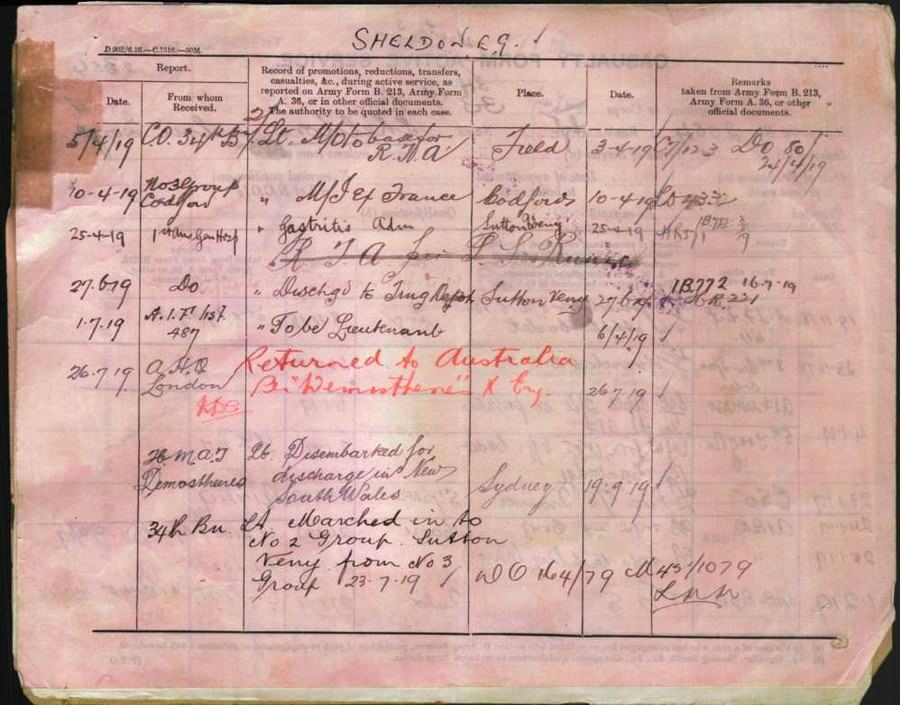 SHELDON E.G.
D.902/6.16.—C.7816.—50M.
Report.
Record of promotions, reductions, transfers,
casualties, &c., during active service, as
reported on Army Form B. 213, Army Form
A. 36, or in other official documents.
The authority to be quoted in each case.
Place.
Date.
Remarks
taken from Army Form B. 213,
Army Form A. 36, or other
official documents.
Date.
From whom
Received.
5/4/19 C.O. 34th Bn 2/Lt. M/o to base for Field 3-4-19 C7/123 Do 80
R.T.A 24/4/19
10-4-19 No 3 Group " M/I Ex France Codford 10-4-19
Codford
25-4-19 1st Aus Gen Hosp " Gastritis Adm Sutton Veny 25-4-19
R T A for
27.6.19 Do " Dischgd to Trng Depot Sutton Veny 27.6.19 1B772 16.7.19
HR 221
1.7.19 A.I.F. list " To be Lieutenant 6/4/19
487
26.7.19 A.H.Q Returned to Australia
London Per "Demosthenes" X Eng. 26.7.19
H.M.A.T Lt. Disembarked for
Demosthenes discharge in New Sydney 19.9.19
South Wales
34th Bn. Lt. Marched in to
No 2 Group Sutton
Veny from No 3
Group 23.7.19 DO 164/79 M43/1079